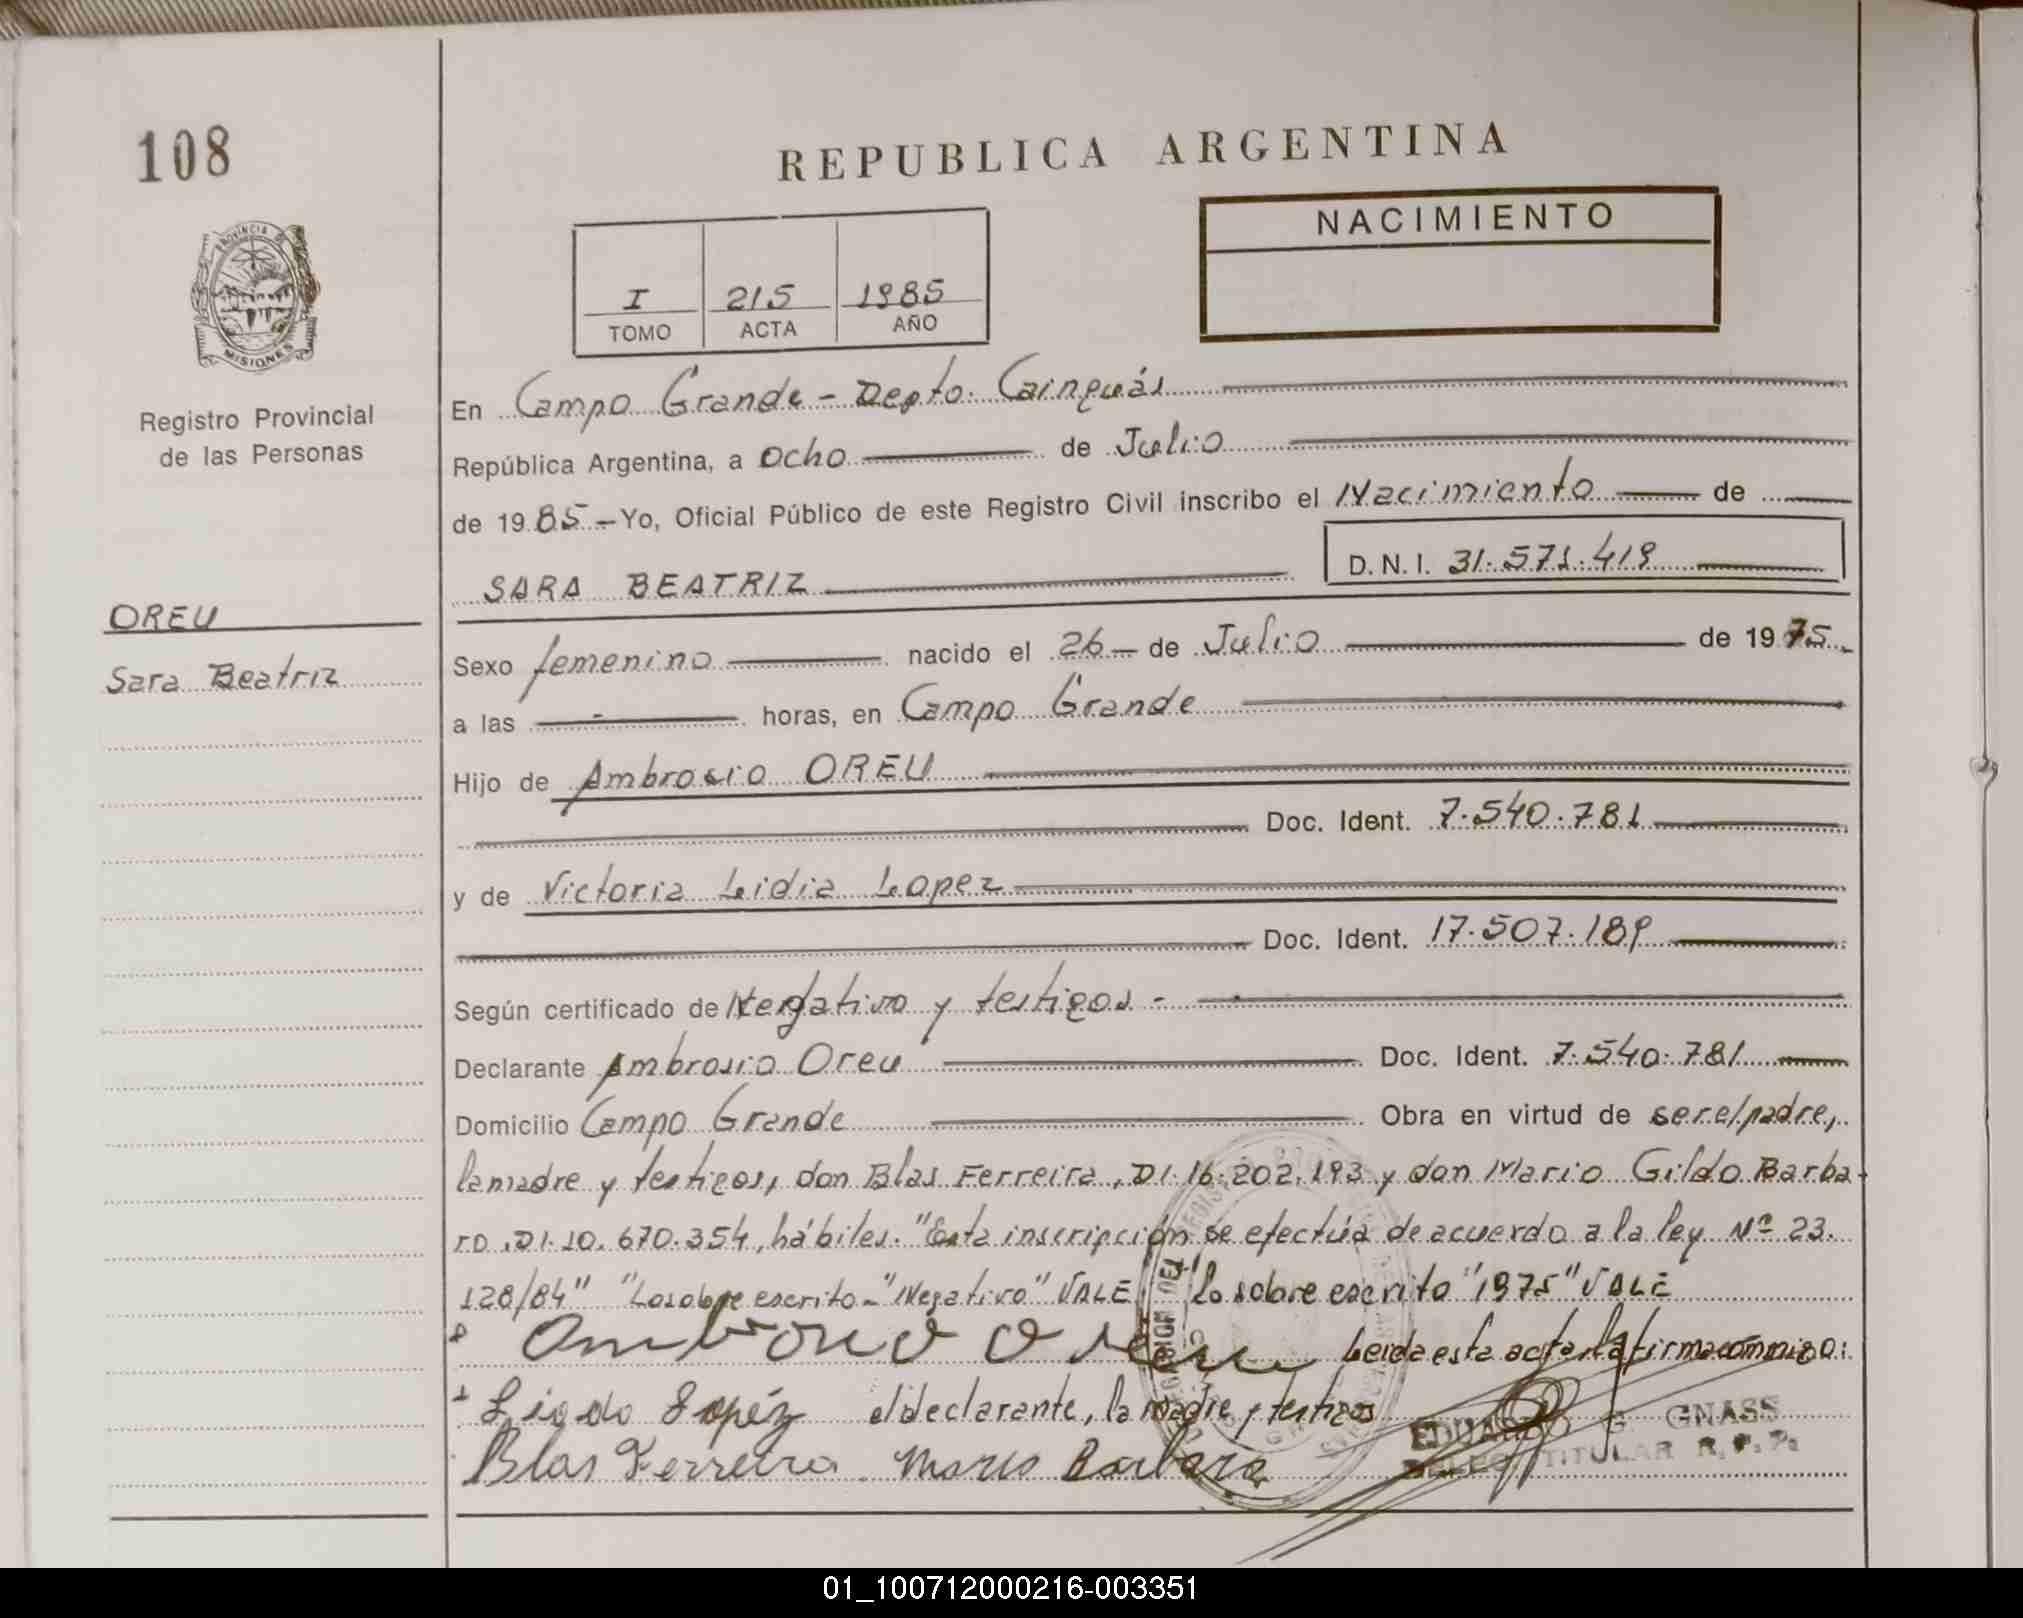 108
REPUBLICA ARGENTINA
NACIMIENTO
I 215 1985
TOMO ACTA AÑO
PROVINCIA DE
MISIONES
Registro Provincial
de las Personas
OREU
Sara Beatriz
En Campo Grande - Depto. Cainguás
República Argentina, a ocho de Julio
de 1985 - Yo, Oficial Público de este Registro Civil inscribo el Nacimiento de
D.N.I. 31.571.419
SARA BEATRIZ
Sexo femenino nacido el 26 de Julio de 1975
a las - horas, en Campo Grande
Hijo de Ambrosio OREU
Doc. Ident. 7.540.781
y de Victoria Lidia Lopez
Doc. Ident. 17.507.189
Según certificado de Negativo y testigos -
Declarante Ambrosio Oreu Doc. Ident. 7.540.781
Domicilio Campo Grande Obra en virtud de ser el padre,
la madre y testigos, don Blas Ferreira, DI. 16.202.193 y don Mario Gildo Barba-
ro, DI. 10.670.354, hábiles. "Esta inscripción se efectúa de acuerdo a la ley Nº 23.
128/84" "Lo sobre escrito - "Negativo" VALE "Lo sobre escrito "1975" VALE
Ambrosio Oreu Leida esta acta la firma conmigo:
Lopéz el declarante, la madre y testigos
Blas Ferreira Mario Barbaro
EDUARDO G. GNASS
DELEG. TITULAR R.P.P.
01_100712000216-003351